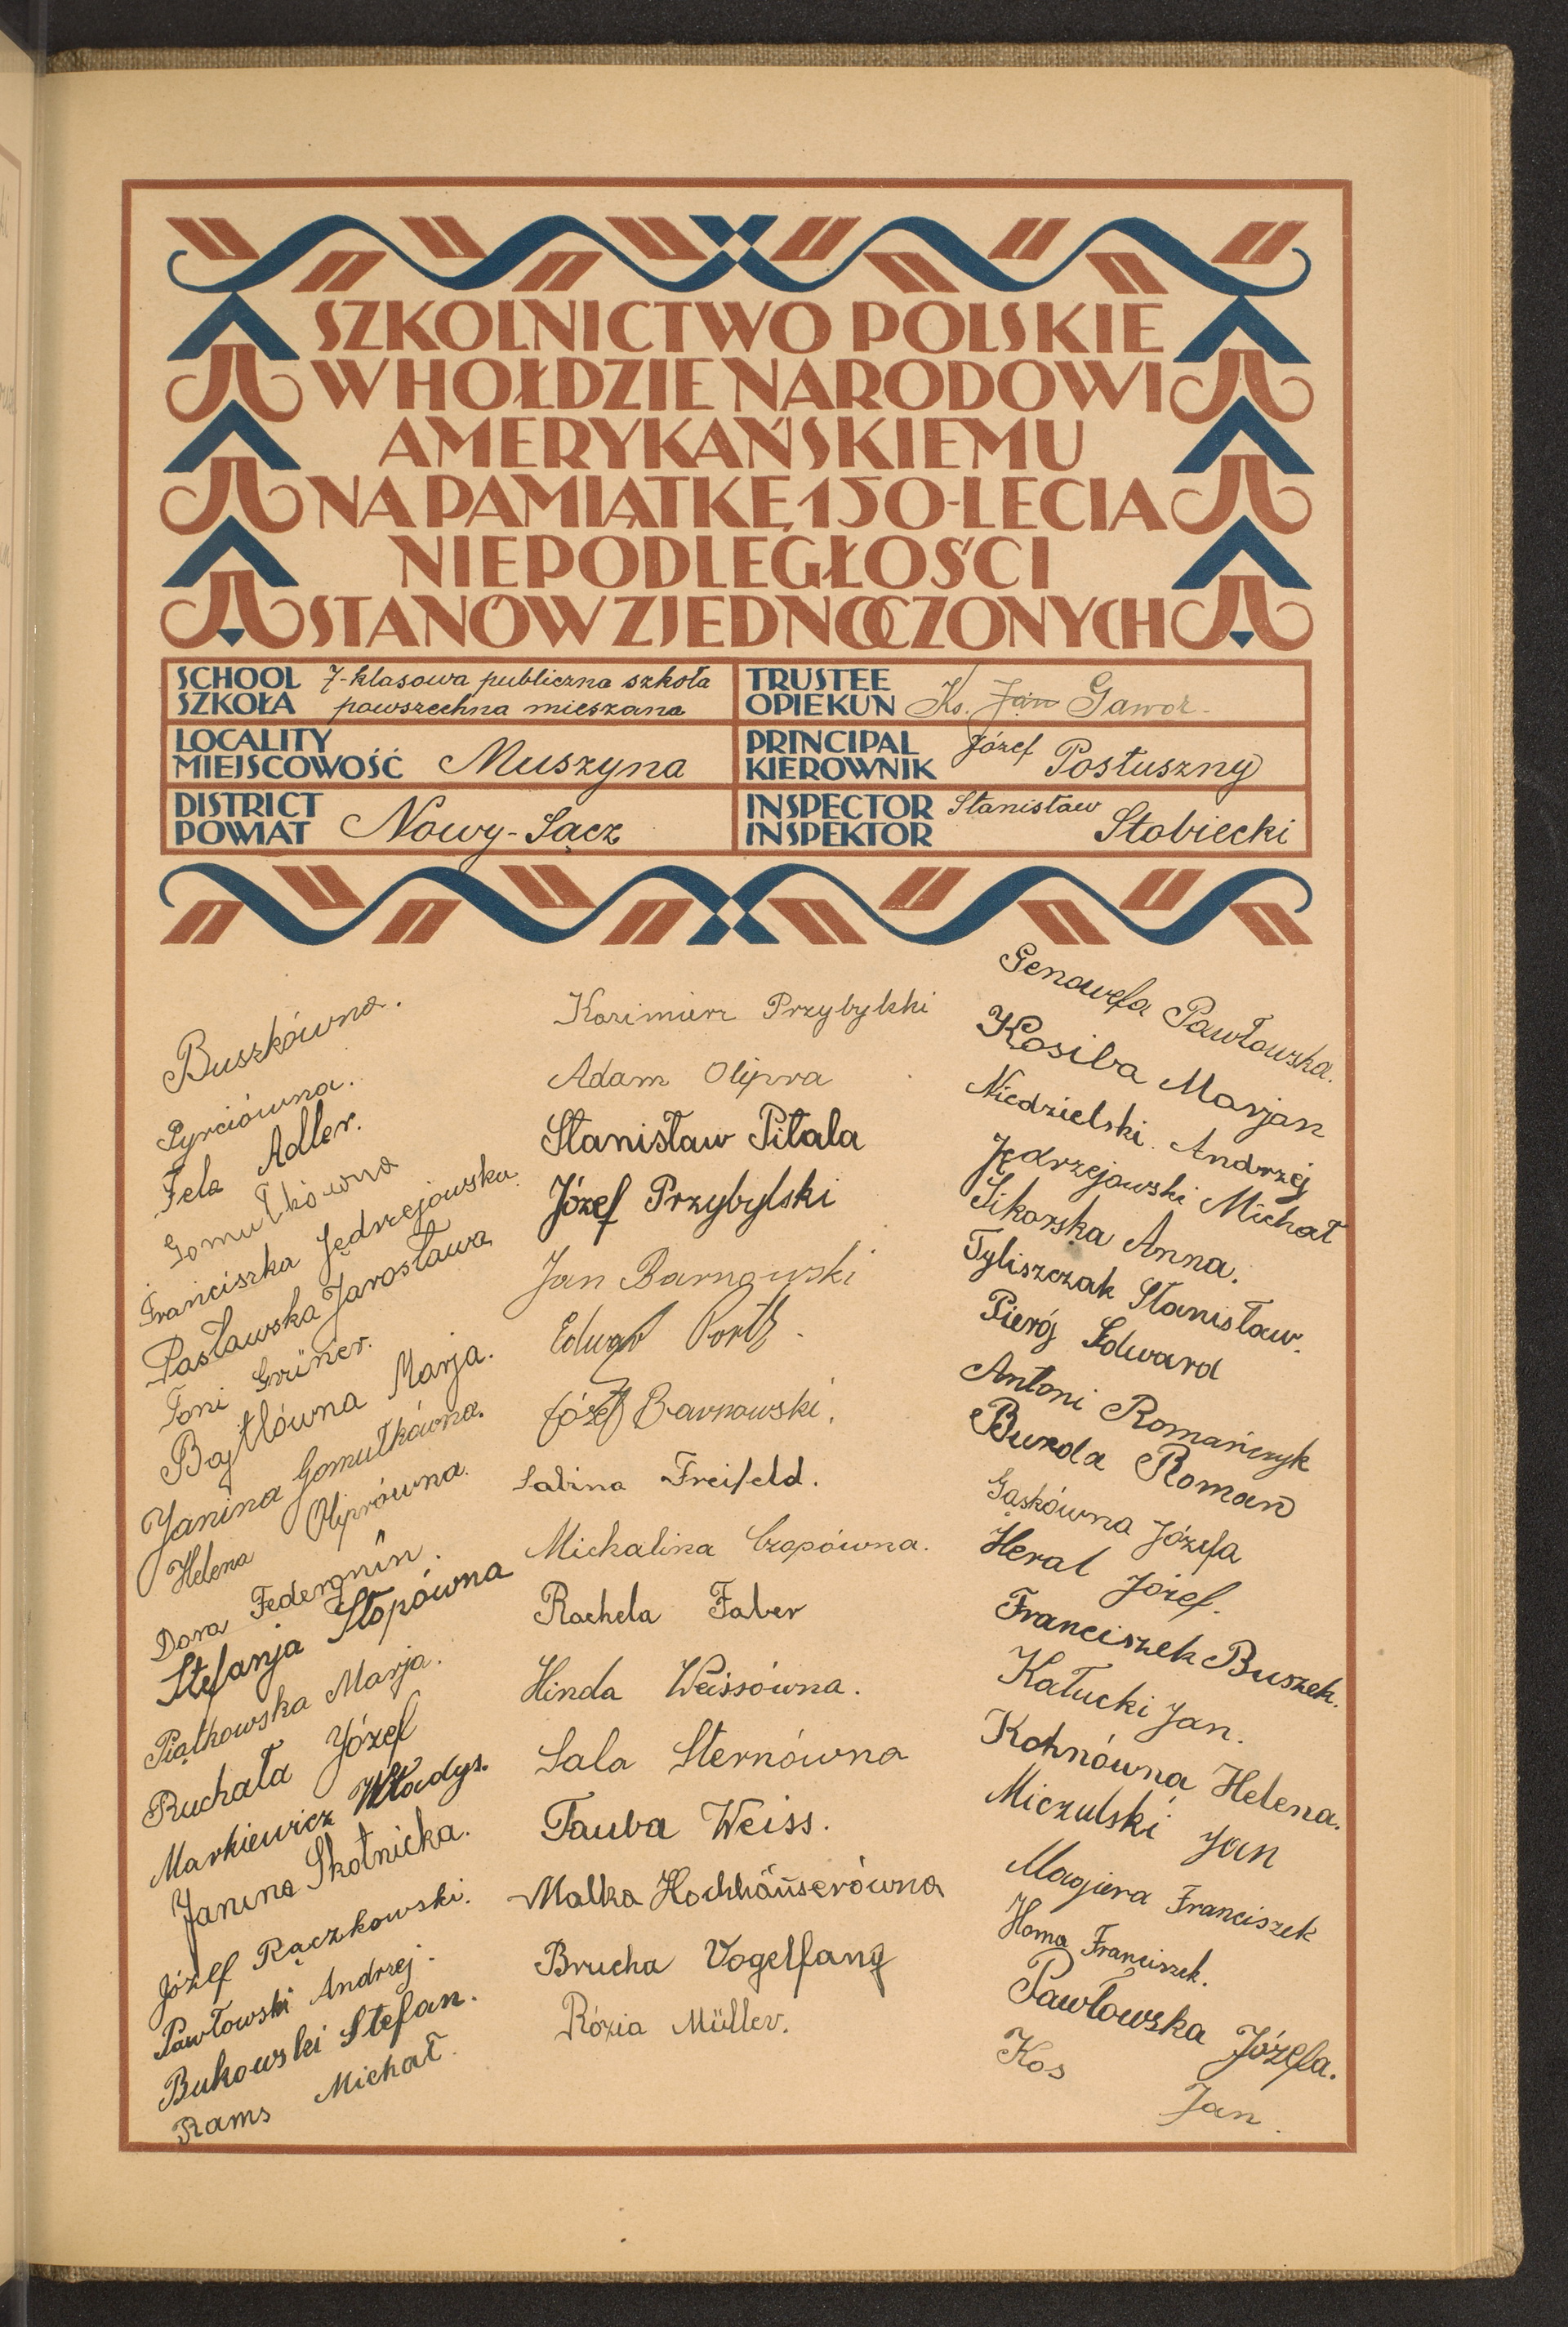 SZKOLNICTWO POLSKIE
W HOŁDZIE NARODOWI
AMERYKAŃSKIEMU
NA PAMIĄTKĘ 150-LECIA
NIEPODLEGŁOŚCI
STANÓW ZJEDNOCZONYCH
SCHOOL SZKOŁA 7-klasowa publiczna szkoła
powszechna mieszana
TRUSTEE OPIEKUN Ks. Jan Gawor
LOCALITY MIEJSCOWOŚĆ Muszyna
PRINCIPAL KIEROWNIK Józef Postuszny
DISTRICT POWIAT Nowy-Sącz
INSPECTOR INSPEKTOR Stanisław Stobiecki
Buszkówna.
Pyrciówna.
Fela Adler.
Gomułkówna
Franciszka Jędrzejowska.
Pasławska Jarosława
Toni Grüner.
Bajtlówna Marja.
Janina Gomułkówna.
Helena Oliprówna.
Dora Federgrün.
Stefanja Stopówna
Piątkowska Marja.
Ruchała Józef
Markiewicz Władys.
Janina Skotnicka.
Józef Rączkowski.
Pawłowski Andrzej.
Bukowski Stefan.
Rams Michał.
Kazimierz Przybylski
Adam Olipra
Stanisław Pitala
Józef Przybylski
Jan Barnowski
Edward Porth.
Józef Barnowski.
Sabina Freifeld.
Michalina Czopówna.
Rachela Faber
Hinda Weissówna.
Sala Sternówna
Tauba Weiss.
Malka Hochhäuserówna
Brucha Vogelfang
Rózia Müller.
Genowefa Pawłowska.
Kosiba Marjan
Niedzielski Andrzej
Jędrzejowski Michał
Sikorska Anna.
Tyliszczak Stanisław.
Pieróg Edward
Antoni Romańczyk
Burda Roman
Gaskówna Józefa
Heral Józef.
Franciszek Buszek.
Kałucki Jan.
Kohnówna Helena.
Miczulski Jan
Magiera Franciszek
Homa Franciszek.
Pawłowska Józefa.
Kos Jan.